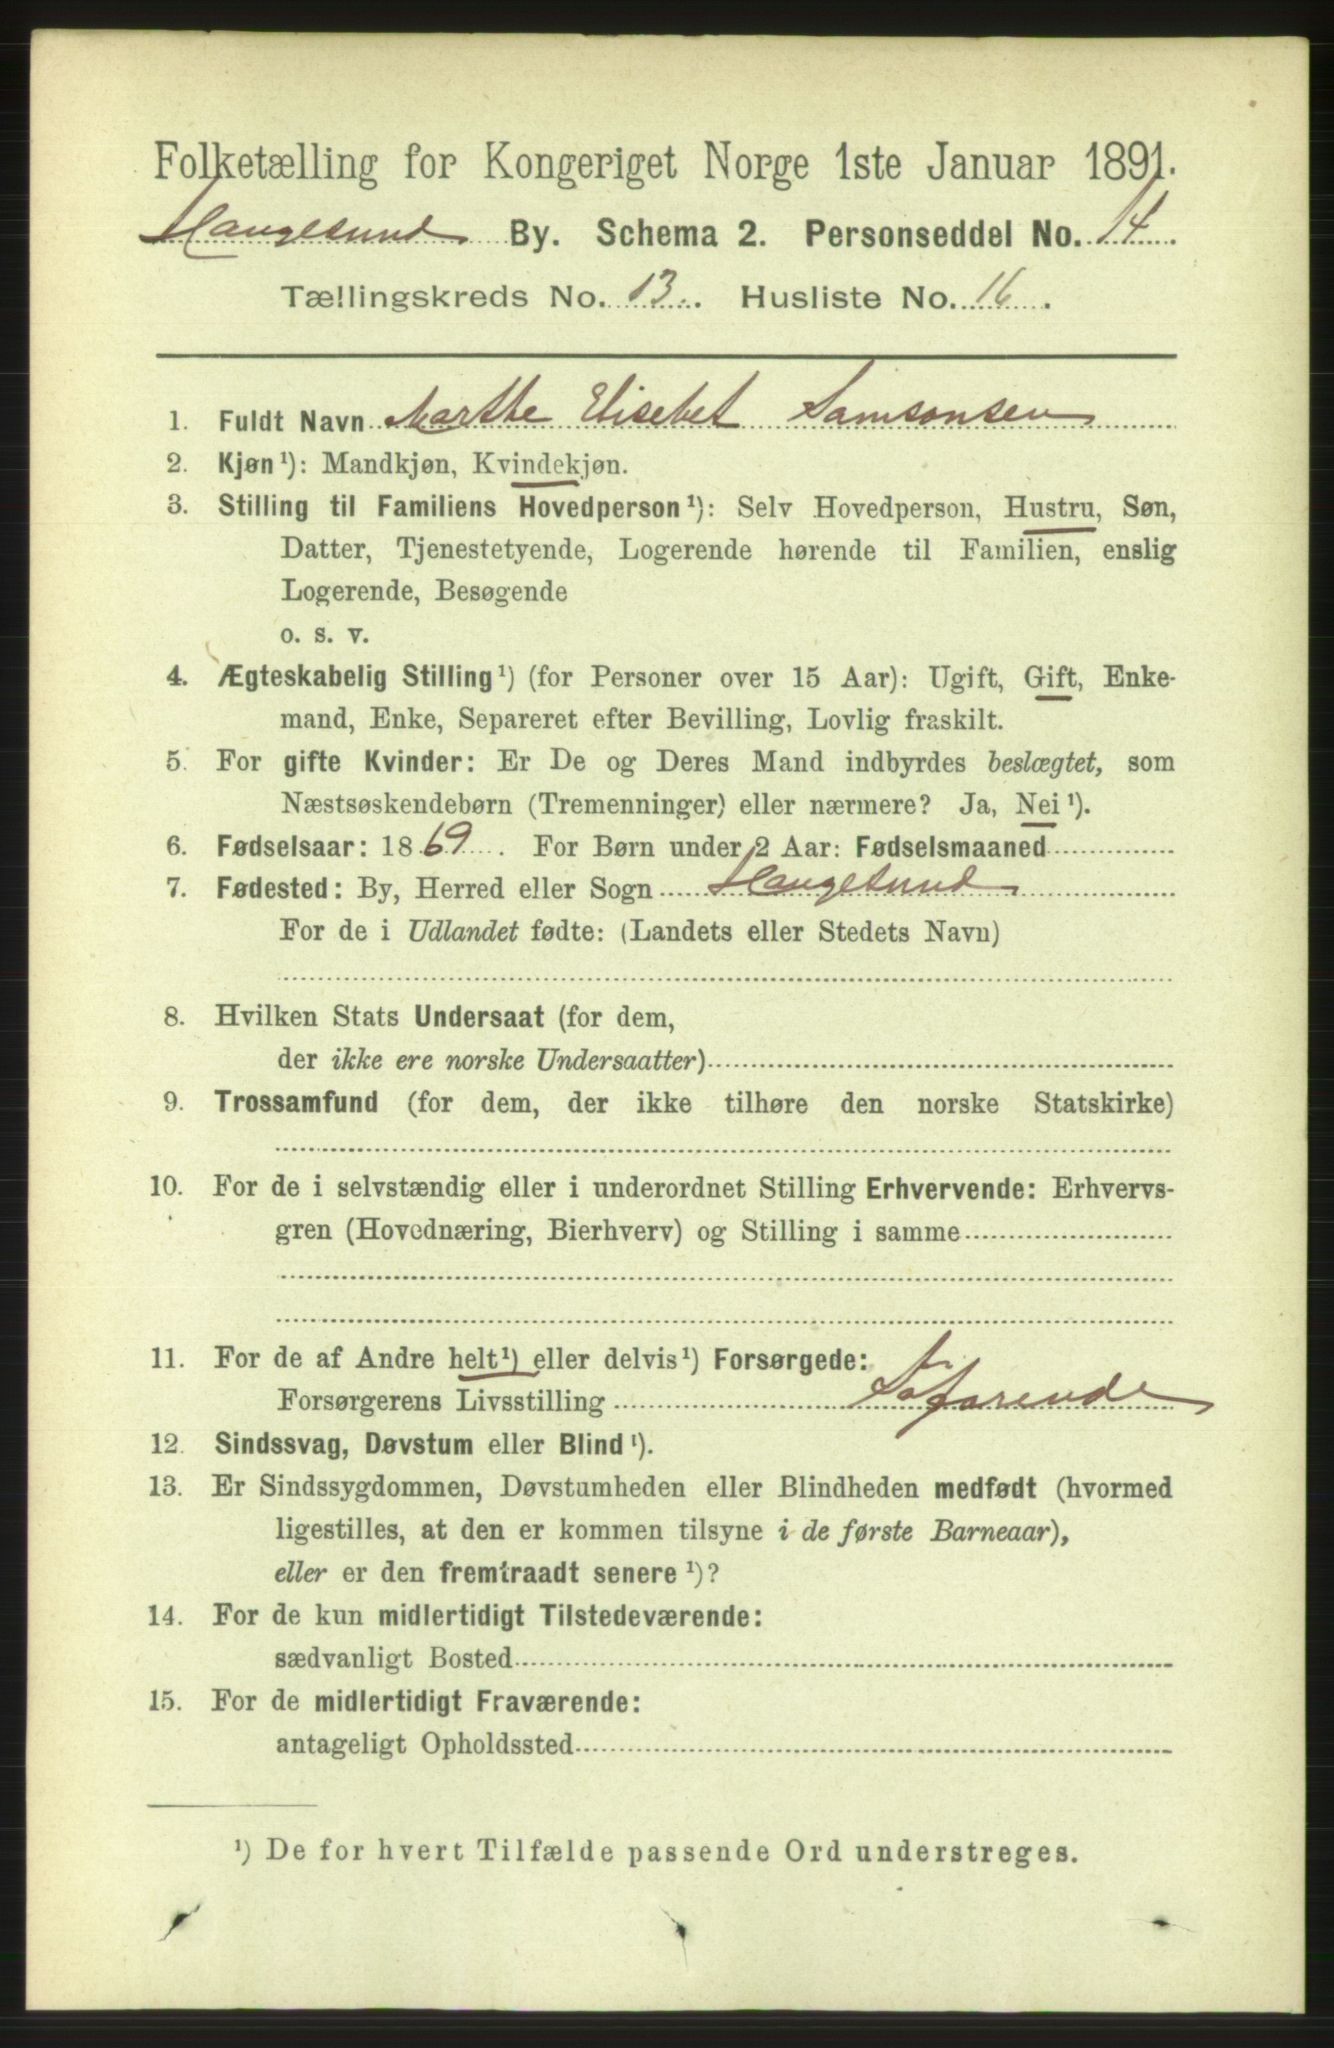 Folketælling for Kongeriget Norge 1ste Januar 1891.
Haugesund By. Schema 2. Personseddel No. 14.
Tællingskreds No. 13. Husliste No. 16.
1. Fuldt Navn Marthe Elisebet Samsonsen
2. Kjøn¹): Mandkjøn, Kvindekjøn.
3. Stilling til Familiens Hovedperson¹): Selv Hovedperson, Hustru, Søn,
Datter, Tjenestetyende, Logerende hørende til Familien, enslig
Logerende, Besøgende
o. s. v.
4. Ægteskabelig Stilling¹) (for Personer over 15 Aar): Ugift, Gift, Enke-
mand, Enke, Separeret efter Bevilling, Lovlig fraskilt.
5. For gifte Kvinder: Er De og Deres Mand indbyrdes beslægtet, som
Næstsøskendebørn (Tremenninger) eller nærmere? Ja, Nei¹).
6. Fødselsaar: 1869. For Børn under 2 Aar: Fødselsmaaned
7. Fødested: By, Herred eller Sogn Haugesund
For de i Udlandet fødte: (Landets eller Stedets Navn)
8. Hvilken Stats Undersaat (for dem,
der ikke ere norske Undersaatter)
9. Trossamfund (for dem, der ikke tilhøre den norske Statskirke)
10. For de i selvstændig eller i underordnet Stilling Erhvervende: Erhvervs-
gren (Hovednæring, Bierhverv) og Stilling i samme
11. For de af Andre helt¹) eller delvis¹) Forsørgede:
Forsørgerens Livsstilling Søfarende
12. Sindssvag, Døvstum eller Blind¹).
13. Er Sindssygdommen, Døvstumheden eller Blindheden medfødt (hvormed
ligestilles, at den er kommen tilsyne i de første Barneaar),
eller er den fremtraadt senere¹)?
14. For de kun midlertidigt Tilstedeværende:
sædvanligt Bosted
15. For de midlertidigt Fraværende:
antageligt Opholdssted
¹) De for hvert Tilfælde passende Ord understreges.